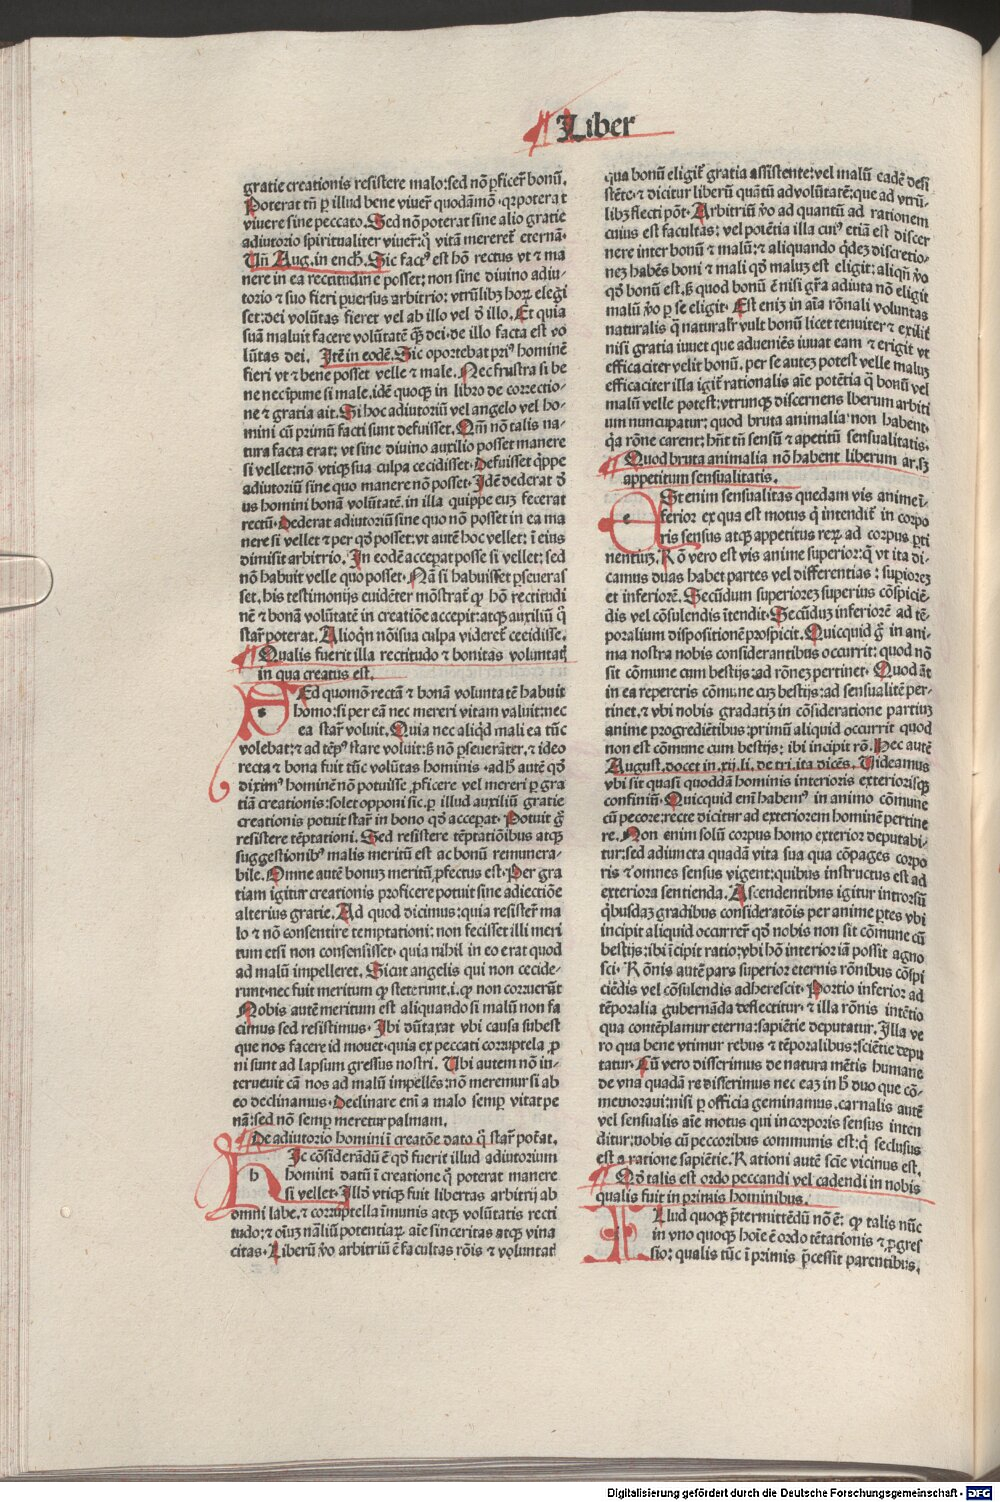 Liber
gratie creationis resistere malo: sed nõ ꝓficerꝰ bonũ.
Poterat tñ ꝑ illud bene viuerꝰ quodãmõ · qꝛ poterat
viuere sine peccato. Sed nõ poterat sine alio gratie
adiutorio spiritualiter viuerꝰ: q̃ vitã mereret̃ eternã·
Uñ Aug. in ench. Sic factꝰ est hõ rectus vt ⁊ ma
nere in ea rectitudine posset: non sine diuino adiu-
torio ⁊ suo fieri ꝑuersus arbitrio: vtrũlibꝫ hoꝝ elegi
set: dei volũtas fieret vel ab illo vel d̕ illo. Et quia
suã maluit facere volũtatẽ q̃ꝫ dei· de illo facta est vo
lũtas dei. Itẽ in eodẽ. Sic oportebat priꝰ hominẽ
fieri vt ⁊ bene posset velle ⁊ male. Nec frustra si be
ne nec ĩpune si male. idẽ quoqꝫ in libro de correctio-
ne ⁊ gratia ait. Si hoc adiutoriũ vel angelo vel ho-
mini cũ primũ facti sunt defuisset. Qm̃ nõ talis na-
tura facta erat: vt sine diuino auxilio posset manere
si vellet: nõ vtiqꝫ sua culpa cecidisset· Defuisset q̃ppe
adiutoriũ sine quo manere nõ posset· Idẽ dederat d̕
us homini bonã volũtatẽ. in illa quippe euꝫ fecerat
rectũ· Dederat adiutoriũ sine quo nõ posset in ea ma
nere si vellet ⁊ per qd̕ posset: vt autẽ hoc vellet: ĩ eius
dimisit arbitrio. In eodẽ acceꝑat posse si vellet: sed
nõ habuit velle quo posset· Nã si habuisset ꝑseueras
set. his testimonijs euidẽter mõstrat̃ ꝙ hõ rectitudi
nẽ ⁊ bonã volũtatẽ in creatiõe accepit: atqꝫ auxiliũ q̃
starꝰ poterat. Alioq̃n nõ sua culpa videret̃ cecidisse.
Qualis fuerit illa rectitudo ⁊ bonitas voluntatꝭ
in qua creatus est.
SEd quomõ rectã ⁊ bonã voluntatẽ habuit
homo: si per eã nec mereri vitam valuit: nec
ea starꝰ voluit. Quia nec aliqd̕ mali ea tũc
volebat: ⁊ ad tẽpꝰ stare voluit: sꝫ nõ ꝑseuerãter. ⁊ ideo
recta ⁊ bona fuit tũc volũtas hominis · ad h̕ autẽ qd̕
diximꝰ hominẽ nõ potuisse ꝓficere vel mereri ꝑ gra
tiã creationis: solet opponi sic. ꝑ illud auxiliũ gratie
creationis potuit starꝰ in bono qd̕ acceꝑat· Potuit g̃
resistere tẽptationi. Sed resistere tẽptatiõibus atqꝫ
suggestionibꝰ malis meritũ est ac bonũ remunera-
bile. Omne autẽ bonuꝫ meritũ ꝓfectus est· Per gra
tiam igitur creationis proficere potuit sine adiectiõe
alterius gratie. Ad quod dicimus: quia resisterꝰ ma
lo ⁊ nõ consentire temptationi: non fecisset illi meri
tum etsi non consensisset· quia nihil in eo erat quod
ad malũ impelleret. Sicut angelis qui non cecide-
runt· nec fuit meritum ꝙ steterunt. i. ꝙ non corruerũt
Nobis autẽ meritum est aliquando si malũ non fa
cimus sed resistimus· Ibi dũtaxat vbi causa subest
que nos facere id mouet· quia ex peccati corruptela ꝓ
ni sunt ad lapsum gressus nostri. Ubi autem nõ in-
teruenit cã nos ad malũ impellẽs: nõ meremur si ab
eo declinamus· Declinare em̃ a malo semꝑ vitat pe
nã: sed nõ semꝑ meretur palmam.
De adiutorio homini ĩ creatõe dato q̃ starꝰ pot̃at.
HIc cõsiderãdũ ẽ qd̕ fuerit illud adiutorium
homini datũ ĩ creatione q̃ poterat manere
si vellet. Illd̕ vtiqꝫ fuit libertas arbitrij ab
omni labe. ⁊ corruptella ĩmunis atqꝫ volũtatis recti
tudo: ⁊ oĩuꝫ nãliũ potentiaꝝ aĩe sinceritas atqꝫ viua
citas· Liberũ v̕o arbitriũ ẽ facultas rõis ⁊ volunta꞊
qua bonũ eligit̃ gratia assistente: vel malũ eadẽ desi
stẽte· ⁊ dicitur liberũ quãtũ ad volũtatẽ: que ad vtrũ-
libꝫ flecti põt· Arbitriũ v̕o ad quantũ ad rationem
cuius est facultas: vel potẽtia illa cuiꝰ etiã est discer
nere inter bonũ ⁊ malũ: ⁊ aliquando q̃deꝫ discretio-
neꝫ habẽs boni ⁊ mali qd̕ maluꝫ est eligit: aliqñ v̕o
qd̕ bonũ est. sꝫ quod bonũ ẽ nisi gr̃a adiuta nõ eligit
malũ v̕o ꝑ se eligit· Est eniꝫ in aĩa rõnali voluntas
naturalis q̃ naturalr̃ vult bonũ licet tenuiter ⁊ exilit̃
nisi gratia iuuet que adueniẽs iuuat eam ⁊ erigit vt
efficaciter velit bonũ. per se auteꝫ potest velle maluꝫ
efficaciter illa igit̃ rationalis aĩe potẽtia q̃ bonũ vel
malũ velle potest: vtrunqꝫ discernens lberum arbiti
um nuncupatur: quod bruta animalia non habent·
q̃a rõne carent: hñt tñ sensũ ⁊ apetitũ sensualitatis.
Quod bruta animalia nõ habent liberum ar. sꝫ
appetitum sensualitatis.
ESt enim sensualitas quedam vis anime ĩ-
ferior ex qua est motus q̃ intendit̃ in corpo
ris sensus atqꝫ appetitus reꝝ ad corpus ꝑti
nentiuꝫ. Rõ vero est vis anime superior: q̃ vt ita di-
camus duas habet partes vel differentias: supiorez
et inferiorẽ. Secũdum superioreꝫ superius cõspiciẽ-
dis vel cõsulendis ĩtendit· Secũduꝫ inferiorẽ ad tẽ-
poralium dispositionẽ prospicit. Quicquid g̃ in ani-
ma nostra nobis considerantibus occurrit: quod nõ
sit cõmune cum bestijs: ad rõneꝫ pertinet· Quod aũt
in ea reperieris cõmune cuꝫ bestijs: ad sensualitẽ per-
tinet. ⁊ vbi nobis gradatiꝫ in cõsideratione partiuꝫ
anime progrediẽtibus: primũ aliquid occurrit quod
non est cõmune cum bestijs: ibi incipit rõ. Hec autẽ
August. docet in. xij. li. de tri. ita dicẽs. Uideamus
vbi sit quasi quoddã hominis interioris exteriorisqꝫ
confiniũ. Quicquid em̃ habemꝰ in animo cõmune
cũ pecore: recte dicitur ad exteriorem hominẽ pertine
re. Non enim solũ corpus homo exterior deputabi-
tur: sed adiuncta quadã vita sua qua cõpages corpo
ris ⁊ omnes sensus vigent: quibus instructus est ad
exteriora sentienda. Ascendentibus igitur introrsũ
q̃busdaꝫ gradibus consideratõis per anime ꝑtes vbi
incipit aliquid occurrerꝰ qd̕ nobis non sit cõmune cũ
bestijs: ibi ĩcipit ratio: vbi hõ interior iã possit agno
sci· Rõnis autẽ pars superior eternis rõnibus cõspi
ciẽdis vel cõsulendis adherescit· Portio inferior ad
tẽporalia gubernãda deflectitur· ⁊ illa rõnis intẽtio
qua contẽplamur eterna: sapiẽtie deputatur. Illa ve
ro qua bene vtimur rebus ⁊ tẽporalibus: sciẽtie depu
tatur· Cũ vero disserimus de natura mẽtis humane
de vna quadã re disserimus nec eaꝫ in h̕ duo que cõ-
memorauĩ: nisi ꝑ officia geminamus. carnalis autẽ
vel sensualis aĩe motus qui in corporis sensus inten
ditur: nobis cũ peccoribus communis est: q̃ seclusus
est a ratione sapiẽtie. Rationi autẽ sciẽ vicinus est.
Qd̕ talis est ordo peccandi vel cadendi in nobis
qualis fuit in primis hominibus.
ILlud quoqꝫ p̃termittẽdũ nõ ẽ: ꝙ talis nũc
in vno quoqꝫ hoĩe ẽ ordo tẽtationis ⁊ ꝓgres
sio: qualis tũc ĩ primis p̃cessit parentibus.
Digitalisierung gefördert durch die Deutsche Forschungsgemeinschaft - DFG